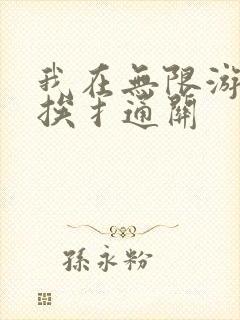 我在無限游
挨扌通關
孫永粉